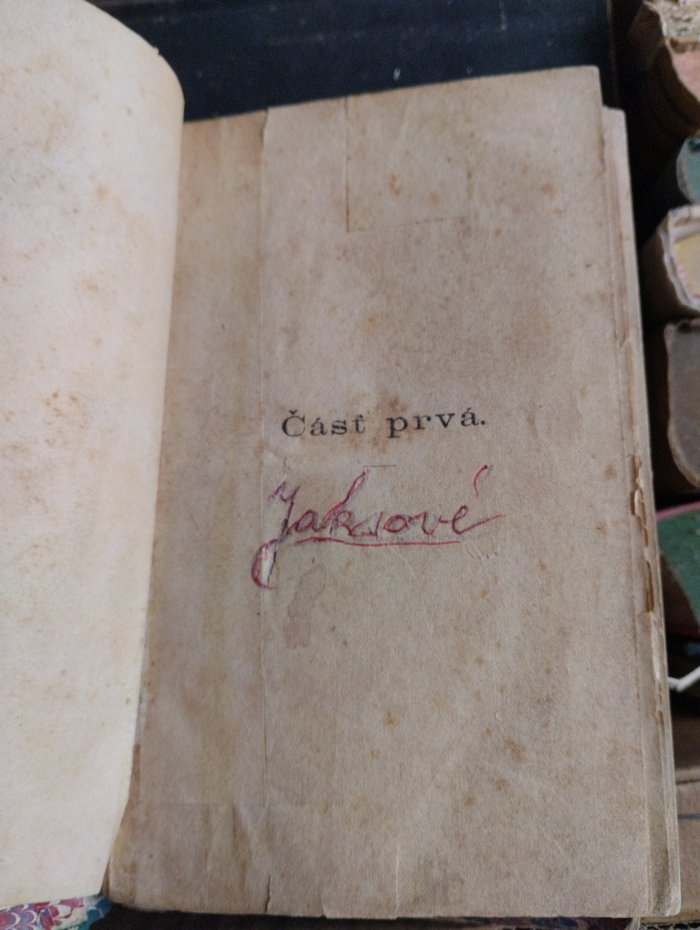 Část prvá.
Jaksové